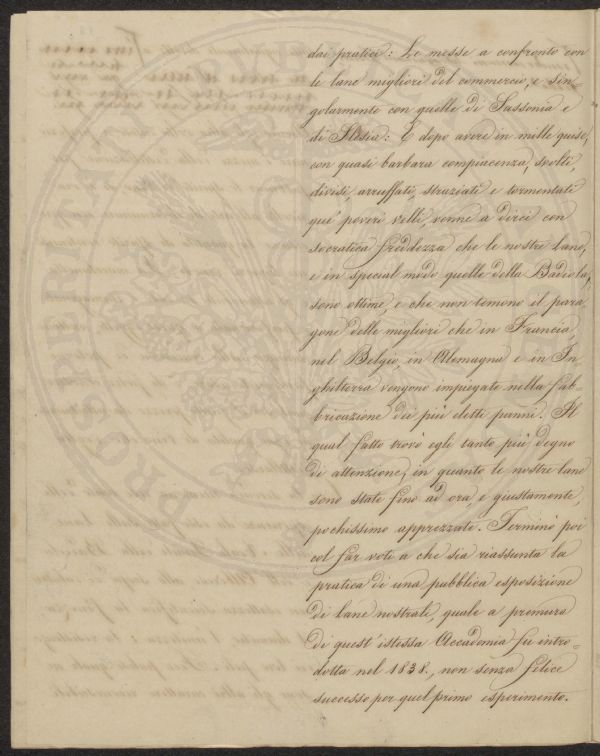 dai pratici: Le messe a confronto con
le lane migliori del commercio, e sin=
golarmente con quelle di Sassonia e
di Slesia: E dopo avere in mille guise,
con quasi barbara compiacenza, svolti,
divisi, arruffati, straziati e tormentati
que' poveri velli, venne a dirci con
socratica freddezza che le nostre lane,
e in special modo quelle della Badiola,
sono ottime, e che non temono il para
gone delle migliori che in Francia,
nel Belgio, in Alemagna e in In
ghilterra vengono impiegate nella fab=
bricazione dei più eletti panni. Il
qual fatto trovò egli tanto più degno
di attenzione, in quanto le nostre lane
sono state fino ad ora, e giustamente,
pochissimo apprezzate. Terminò poi
col far voti a che sia riassunta la
pratica di una pubblica esposizione
di lane nostrali, quale a premura
di quest'istessa Accademia fu intro=
dotta nel 1838., non senza felice
successo per quel primo esperimento.